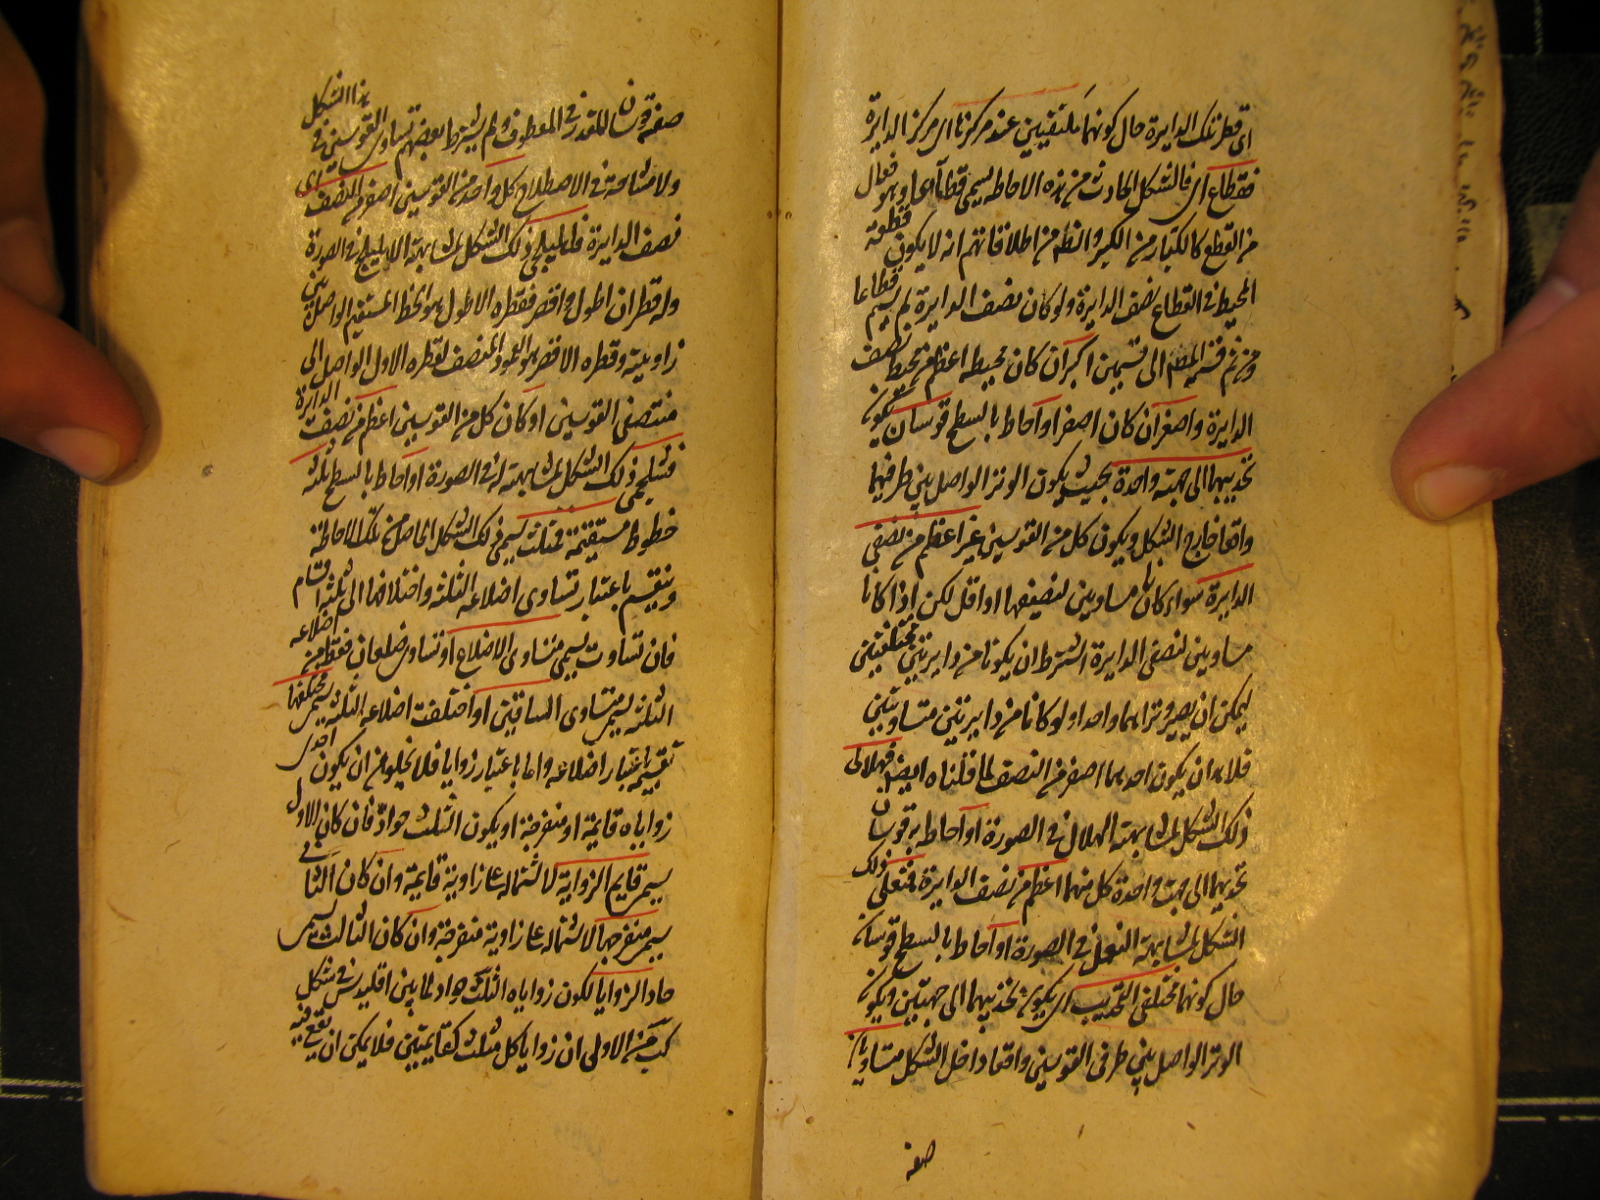 اى قطر تلك الدايرة حال كونهما ملتقيين عند مركزها اى مركز الدايرة
فقطاع اى فالشكل الحادث من هذه الاحاطة يسمى قطاعا وهو فعال
من القطع كالكبار من الكبر والظ من اطلاقاتهم انه لا يكون قطعة
المحيط فى القطاع نصف الدايرة ولو كان نصف الدايرة لم يسم قطاعا
ومن ثم قسمه المصم الى قسمين اكبر ان كان محيطه اعظم من محيط نصف
الدايرة واصغر ان كان اصغر او احاط بالسطح قوسان يكون
تحديبهما الى جهة واحدة بحيث يكون الوتر الواصل بين طرفيهما
واقعا خارج الشكل ويكون كل من القوسين غير اعظم من نصفى
الدايرة سواء كانا مساويين لنصفيهما او اقل لكن اذا كانا
مساويين لنصفى الدايرة اشترط ان يكونا من دايرتين مختلفتين
ليمكن ان يصير وتراهما واحدا ولو كانا من دايرتين متساويتين
فلا بد ان يكون احدهما اصغر من النصف لما قلناه ايضا فهلالى
ذلك الشكل لمشابهته الهلال فى الصورة او احاط به قوسان
تحديبهما الى جهت واحدة كل منهما اعظم من نصف الدايرة فنعلى ذلك
الشكل لمشابهته النعل فى الصورة او احاط بالسطح قوسان
حال كونهما مختلفى التحديب اى يكون تحديبهما الى جهتين ويكون
الوتر الواصل بين طرفى القوسين واقعا داخل الشكل متساويان
صفة
صفة قوسان المقدر فى المعطوف ولم يشترط بعضهم تساوى القوسين فى هذا الشكل
ولا مشاحة فى الاصطلاح كل واحد من القوسين اصغر من النصف اى
نصف الدايرة فاهليلجى ذلك الشكل لمشابهته الاهليلج فى الصورة
وله قطران اطول واقصر فقطره الاطول هو الخط المستقيم الواصل بين
زاويتيه وقطره الاقصر هو العمود المنصف لقطره الاول الواصل الى
منتصفى القوسين او كان كل من القوسين اعظم من نصف الدايرة
فشلجمى ذلك الشكل لمشابهته له فى الصورة او احاط بالسطح ثلثة
خطوط مستقيمة فمثلث يسمى ذلك الشكل الحاصل من تلك الاحاطة
وينقسم باعتبار تساوى اضلاعه الثلثة واختلافها الى ثلثة اقسام
فان تساوت يسمى متساوى الاضلاع او تساوى ضلعان فقط من اضلاعه
الثلثة يسمى متساوى الساقين او اختلفت اضلاعه الثلثة يسمى مختلفها
تقسيمه باعتبار اضلاعه واما باعتبار زواياه فلا يخلو من ان يكون احدى
زواياه قايمة او منفرجة او يكون الثلث حواد فان كان الاول
يسمى قايم الزواية لاشتماله على زاوية قايمة وان كان الثانى
يسمى منفرجها لاشتماله على زاوية منفرجة وان كان الثالث يسمى
حاد الزوايا لكون زواياه الثلث حواد لما بين اقليدس فى شكل
لب من الاولى ان زوايا كل مثلث كقايمتين فلا يمكن ان يقع فيه